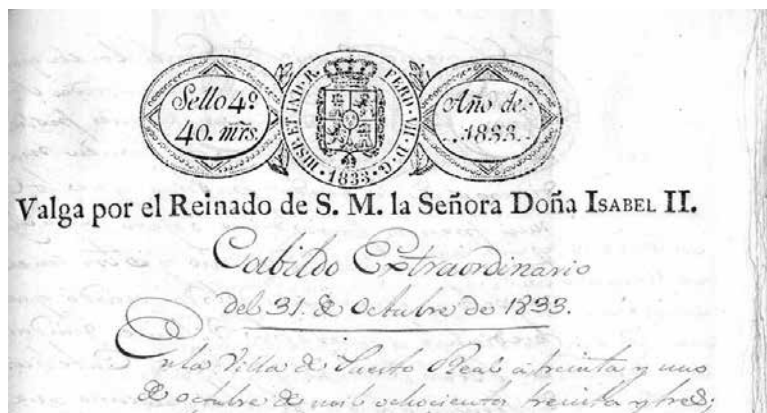 Sello 4º
40. mrs.
HISP. ET IND. R. FERD. VII. D. G.
·1833·
Año de
1833.
Valga por el Reinado de S. M. la Señora Doña ISABEL II.
Cabildo Extraordinario
del 31. de Octubre de 1833.
En la Villa de Puerto Real a treinta y uno
de octubre de mil ochocientos treinta y tres;